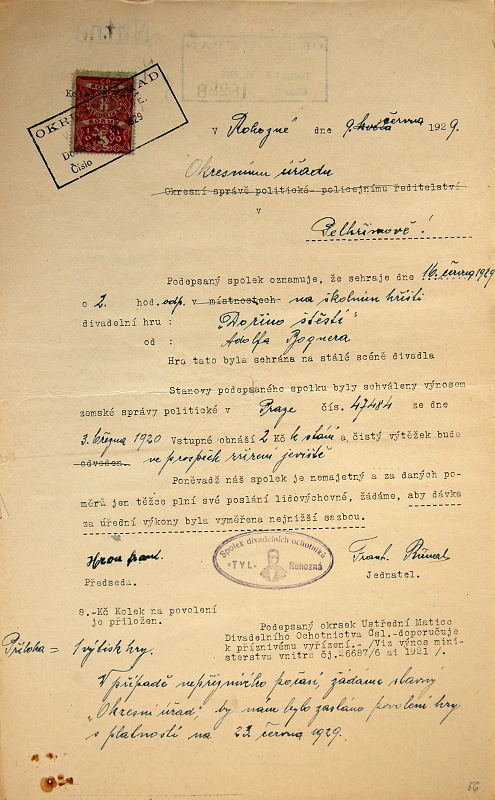 OKRESNÍ ÚŘAD
Číslo
KOLEK
8
KORUN
5
18288
v Rohozné dne 9. května června 1929.
Okresnímu úřadu
Okresní správě politické- policejnímu ředitelství
v
Pelhřimově!
Podepsaný spolek oznamuje, že sehraje dne 16. června 1929
o 2. hod. odp. v místnostech na školním hřišti
divadelní hru : "Dořino štěstí"
od : Adolfa Bognera
Hra tato byla sehrána na stálé scéně divadla
Stanovy podepsaného spolku byly schváleny výnosem
zemské správy politické v Praze čís. 47484 ze dne
3. března 1920 Vstupné obnáší 2 Kč k stání a čistý výtěžek bude
odveden. ve prospěch zřízení jeviště
Poněvadž náš spolek je nemajetný a za daných po-
měrů jen těžce plní své poslání lidovýchovné, žádáme, aby dávka
za úřední výkony byla vyměřena nejnižší sazbou.
Spolek divadelních ochotníků
"TYL" Rohozná
Předseda.
Frant.
Jednatel.
8.-Kč Kolek na povolení
je přiložen.
Podepsaný okrsek Ustřední Matice
Divadelního Ochotnictva Čsl.-doporučuje
k příznivému vyřízení.- Viz výnos mini-
sterstva vnitra čj.26687/6 ai 1921 /.
Příloha = 1 výtisk hry.
V případě nepříznivého počasí, žádáme slavný
"Okresní úřad," by nám bylo zasláno povolení hry
s platností na 23. června 1929.
56